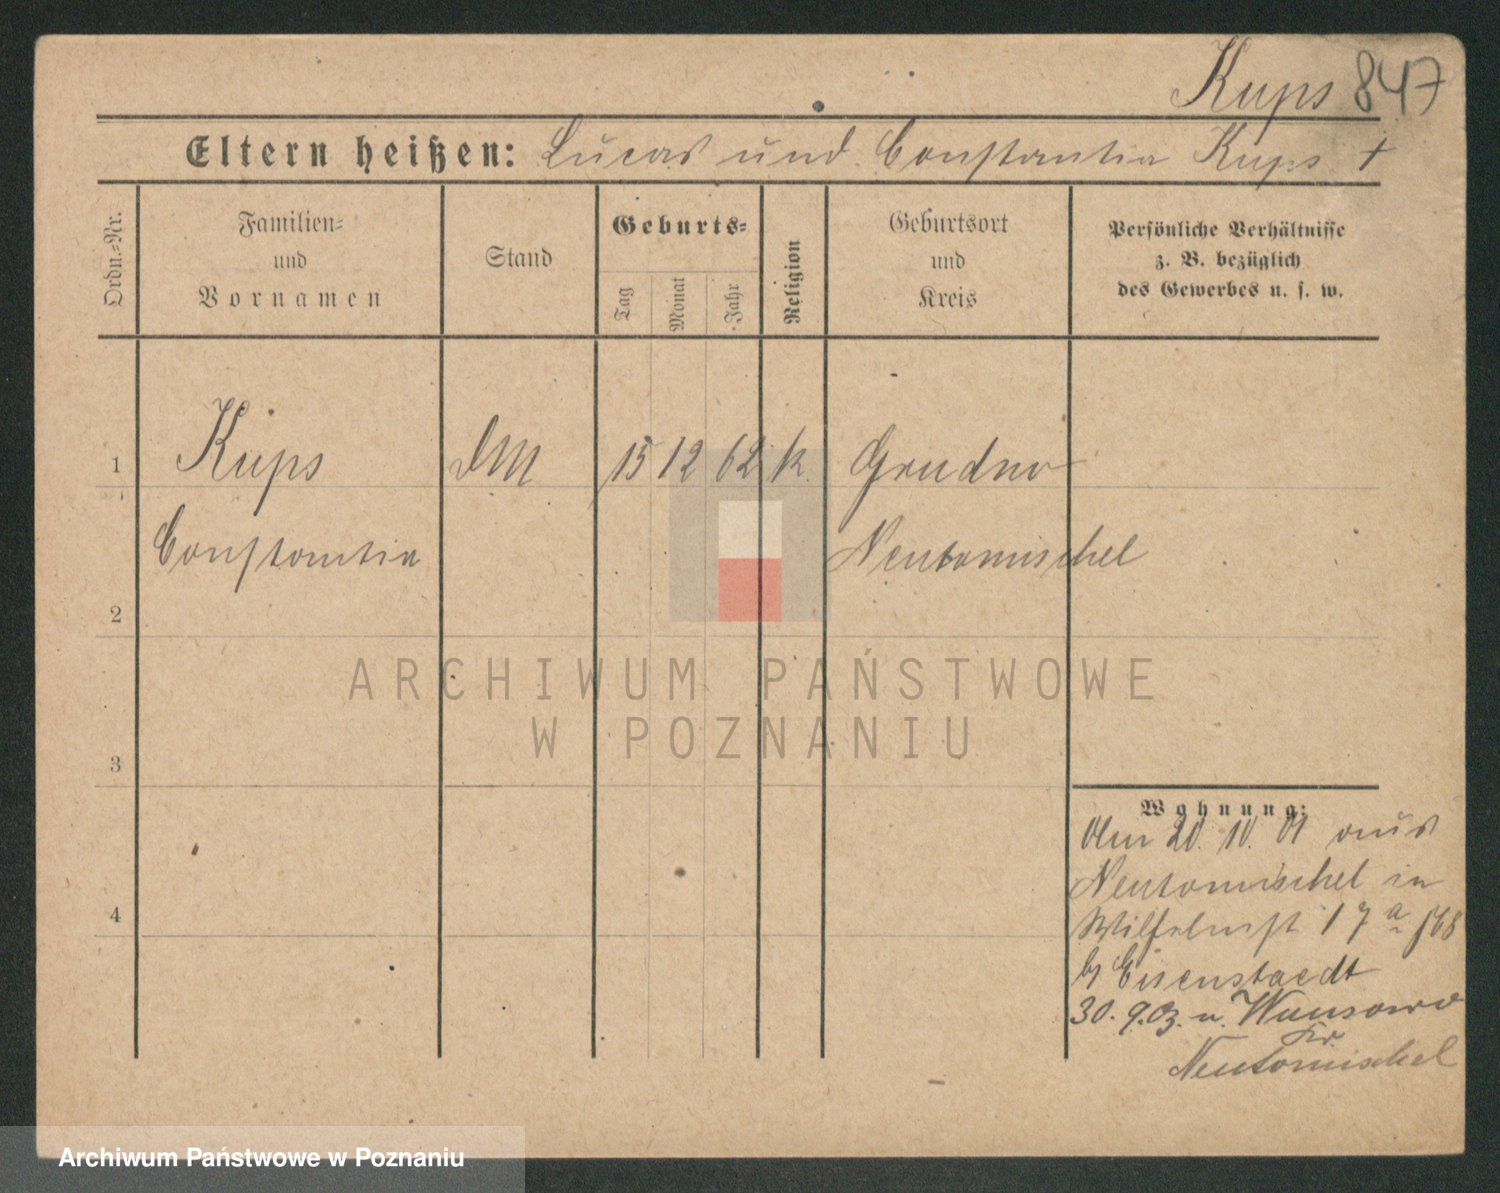 Kups 847
Eltern heißen: Lucas und Constantia Kups †
Ordn.-Nr.
Familien-
und
Vornamen
Stand
Geburts-
Tag
Monat
Jahr
Religion
Geburtsort
und
Kreis
Persönliche Verhältnisse
z. B. bezüglich
des Gewerbes u. s. w.
1 Kups DM 15 12 62 k. Grudno
Constantia Neutomischel
2
ARCHIWUM PAŃSTWOWE
W POZNANIU
3
Wohnung:
Am 20. 10. 01 aus
Neutomischel in
Wilhelmst 17 a
4
b/ Eisenstaedt
30. 9. 03. n. Wonsowo
Kr.
Neutomischel
Archiwum Państwowe w Poznaniu